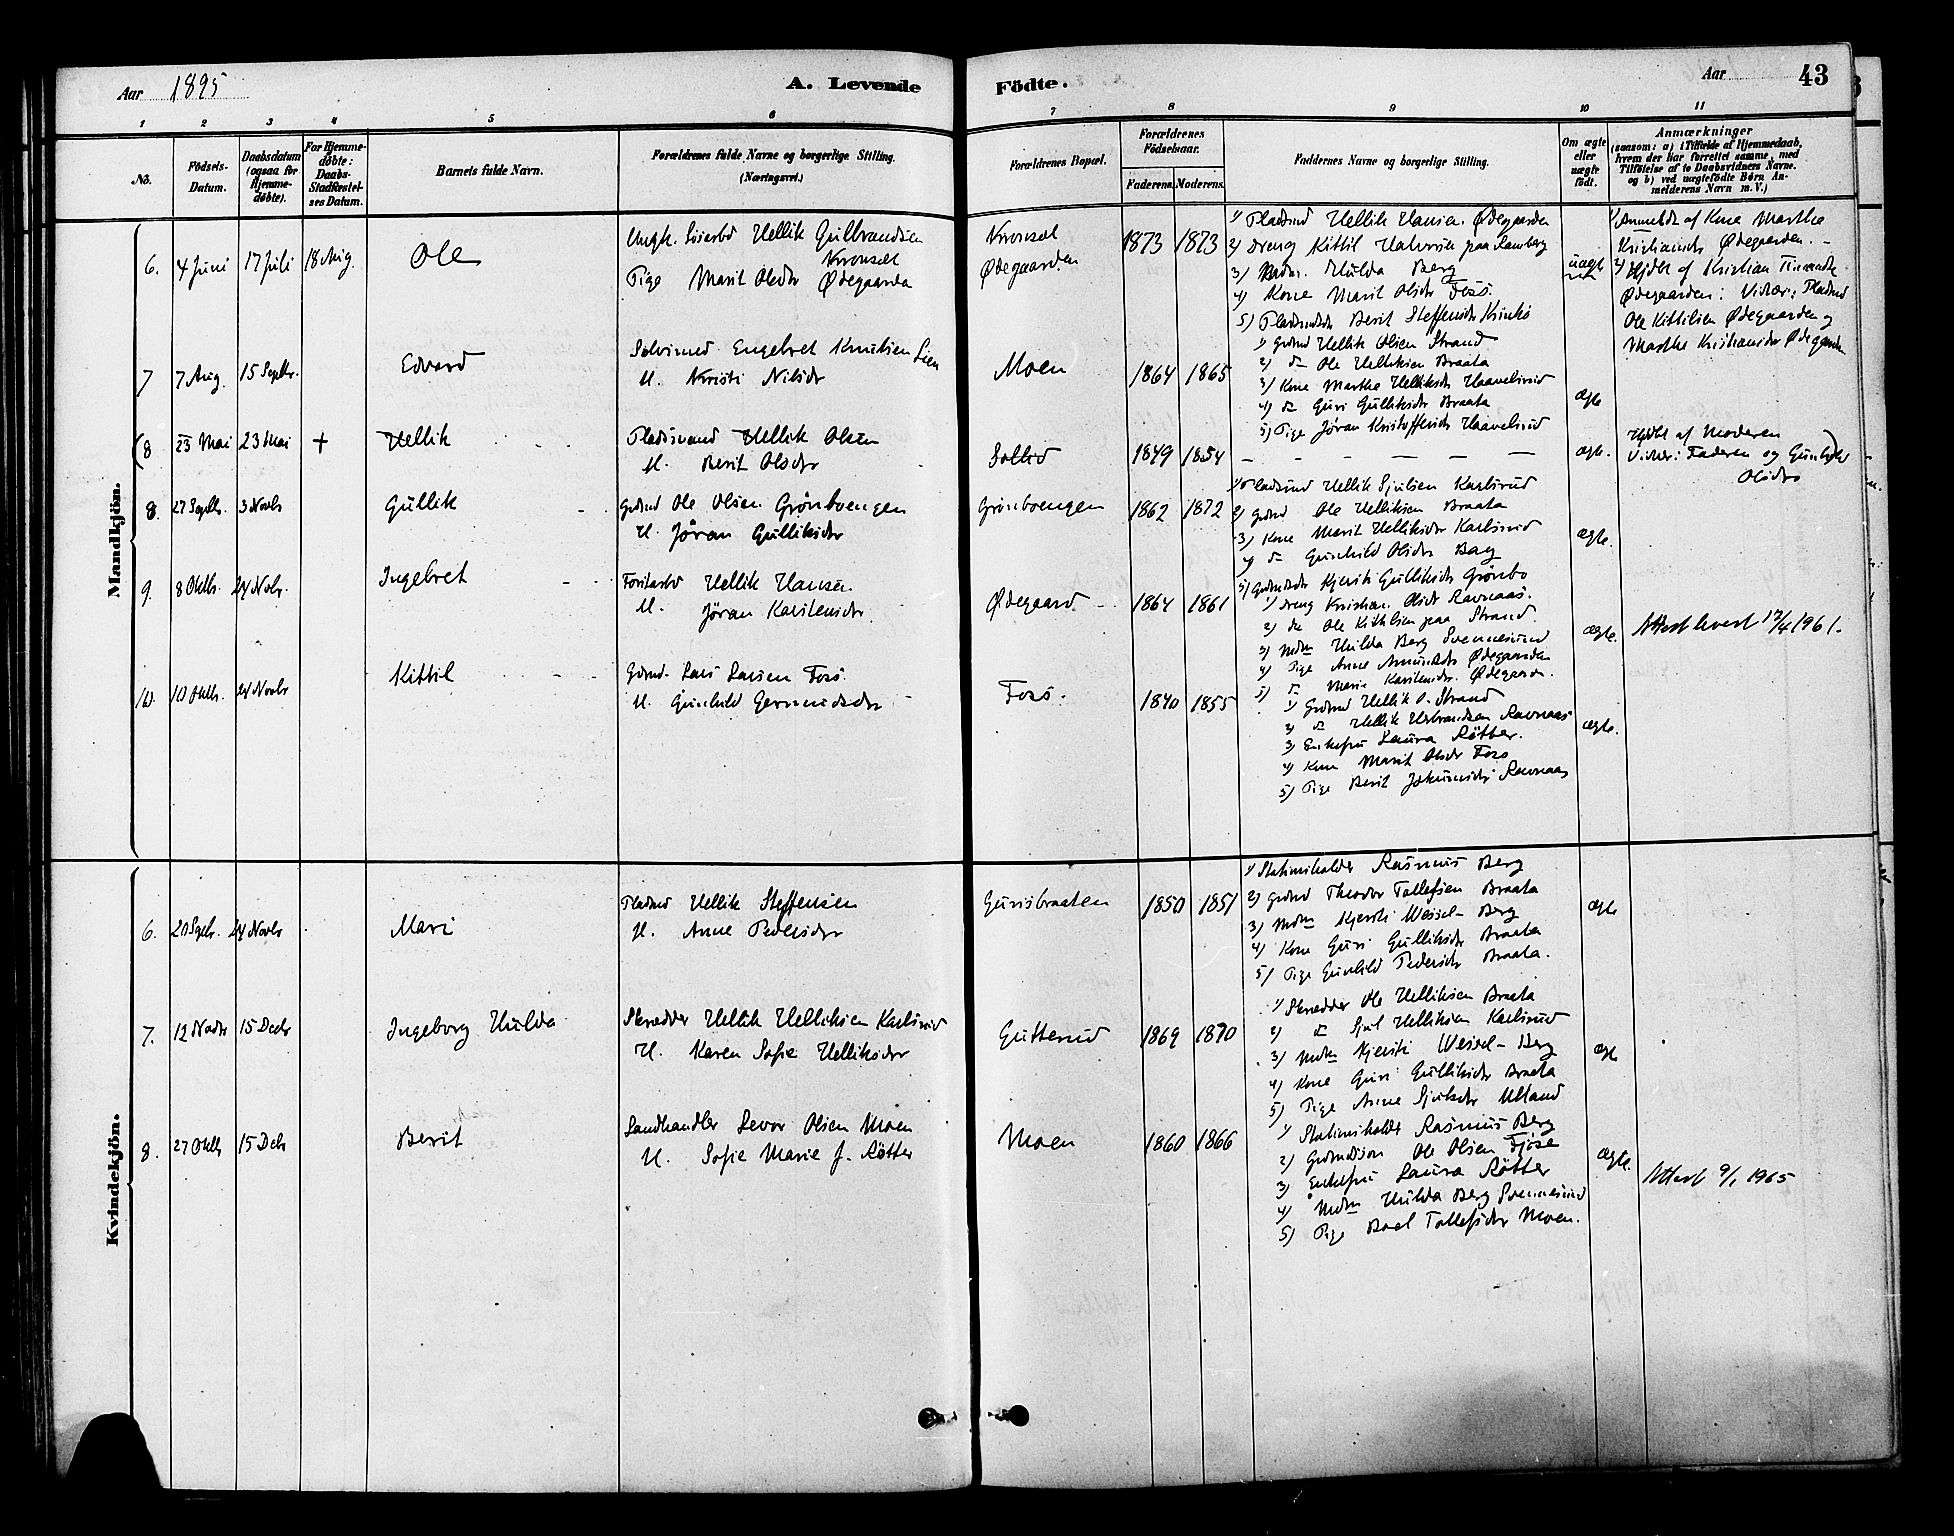 Aar 1895
A. Levende
Födte.
Aar
43
1 2 3 4 5 6 7 8 9 10 11
No.
Födsels-Datum.
Daabsdatum (ogsaa for Hjemmedøbte).
For Hjemmedøbte: Daabs-Stadfæstelses Datum.
Barnets fulde Navn.
Forældrenes fulde Navne og borgerlige Stilling. (Næringsvei.)
Forældrenes Bopæl.
Forældrenes Födselsaar.
Faderens. Moderens.
Faddernes Navne og borgerlige Stilling.
Om ægte eller uægte födt.
Anmærkninger
(saasom: a) i Tilfælde af Hjemmedaab, hvem der har forrettet samme, med Tilföielse af to Daabsvidners Navne. og b) ved uægtefödte Børn Anmelderens Navn m.V.)
Mandkjön.
6. 4 Juni 17 Juli 18 Aug. Ole
Ungk. Hellik Gulbrandsen
Kronsæt
Pige Marit Olsdtr Ødegaarden
Kronsæt
Ødegaarden
1873 1873
1) Pladsmd Hellik Hansen Ødegaarden
2) Dreng Kittil Halvorsen paa Ramberg
3) Madm. Hulda Berg
4) Kone Marit Olsdtr Foss.
5) Berit Steffensdtr
uægte
1) Anmeldt af Kone Marthe
Kristiansdtr Ødegaarden. -
2) Hjdbt af Kristian
Ødegaarden: Vidner: Pladsmd
Ole Kittilsen Ødegaarden og
Marthe Kristiansdtr Ødegaarden
7 7 Aug. 15 Septbr. Edvard
Selveiermd Engebret Knutsen Lien
H. Kristi Nilsdtr
Moen
1864 1865
1) Grdmd Hellik Olsen Strand
2) do Ole Helliksen Braata
3) Kone Marthe Helliksdtr Haavelsrud
4) do Guri Gulliksdtr Braata
5) Pige Jøran Kristoffersdtr Haavelsrud
ægte
(8 23 Mai 23 Mai + Hellik
Pladsmand Hellik Olsen
H. Berit Olsdtr
Sollid
1849 1854
— — — — — —
ægte.
Hjdbt af Moderen
Vidner: Faderen og Gunhild
Olsdtr
8. 27 Septbr. 3 Novbr Gullik
Grdmd Ole Olsen Grönboengen
H. Jøran Gulliksdtr
Grönboengen
1862 1872
1) Pladsmd Hellik Sjulsen Karlsrud
2) Grdmd Ole Helliksen Braata
3) Kone Marit Helliksdtr Karlsrud
4) do Gunhild Olsdtr Berg
5) Grdmdsdtr Kjersti Gulliksdtr Grönbo
ægte.
9. 8 Oktbr. 24 Novbr. Ingebret
Hellik Hansen
H. Jöran Karstensdtr.
Ødegaard.
1864 1861
1) Dreng Kristian Olsen Ravnaas.
2) do Ole Kittilsen paa Strand.
3) Mdm Hulda Berg Svennesund
4) Pige Anne Amundsdtr Ødegaarden
5) do Marie Karstensdtr. Ødegaarden.
ægte.
Attest levert 17/4 1961.
10. 10 Oktbr. 24 Novbr Kittil
Grdmd. Lars Larsen Foss
H. Gunhild Germundsdtr
Foss.
1840 1855
1) Grdmd Hellik O. Strand
2) do Hellik Herbrandsen Ravnaas
3) Enkefru Laura Røtter.
4) Kone Marit Olsdtr Foss
5) Pige Berit Ravnaas
ægte.
Kvindekjön.
6. 20 Septr. 24 Novbr Mari
Pladsmd Hellik Steffensen
H. Anne Pedersdtr
Gurisbraaten
1850 1851
1) Stationsholder Rasmus Berg
2) Grdmd Theodor Tollefsen Braata
3) Mdm Kjersti Wessel-Berg
4) Kone Guri Gulliksdtr Braata
5) Pige Gunhild Pedersdtr Braata.
ægte
7. 12 Novbr 15 Decbr Ingeborg Hulda
Skrædder Hellik Helliksen Karlsrud
H. Karen Sofie Helliksdtr
Gutterud
1869 1870
1) Skrædder Ole Helliksen Braata
2) do Sjul Helliksen Karlsrud
3) Mdm Kjersti Wessel-Berg
4) Kone Guri Gulliksdtr Braata
5) Pige Anne Sjulsdtr Utland
ægte
8. 27 Oktbr 15 Decbr Berit
Landhandler Levor Olsen Moen
H. Sofie Marie f. Røtter
Moen
1860 1866
1) Stationsholder Rasmus Berg
2) Grdmdssøn Ole Olsen Fjøse
3) Enkefru Laura Røtter
4) Mdm Hulda Berg Svennesund
5) Pige Boel Tollefsdtr Moen.
ægte.
Attest 9/1 1965